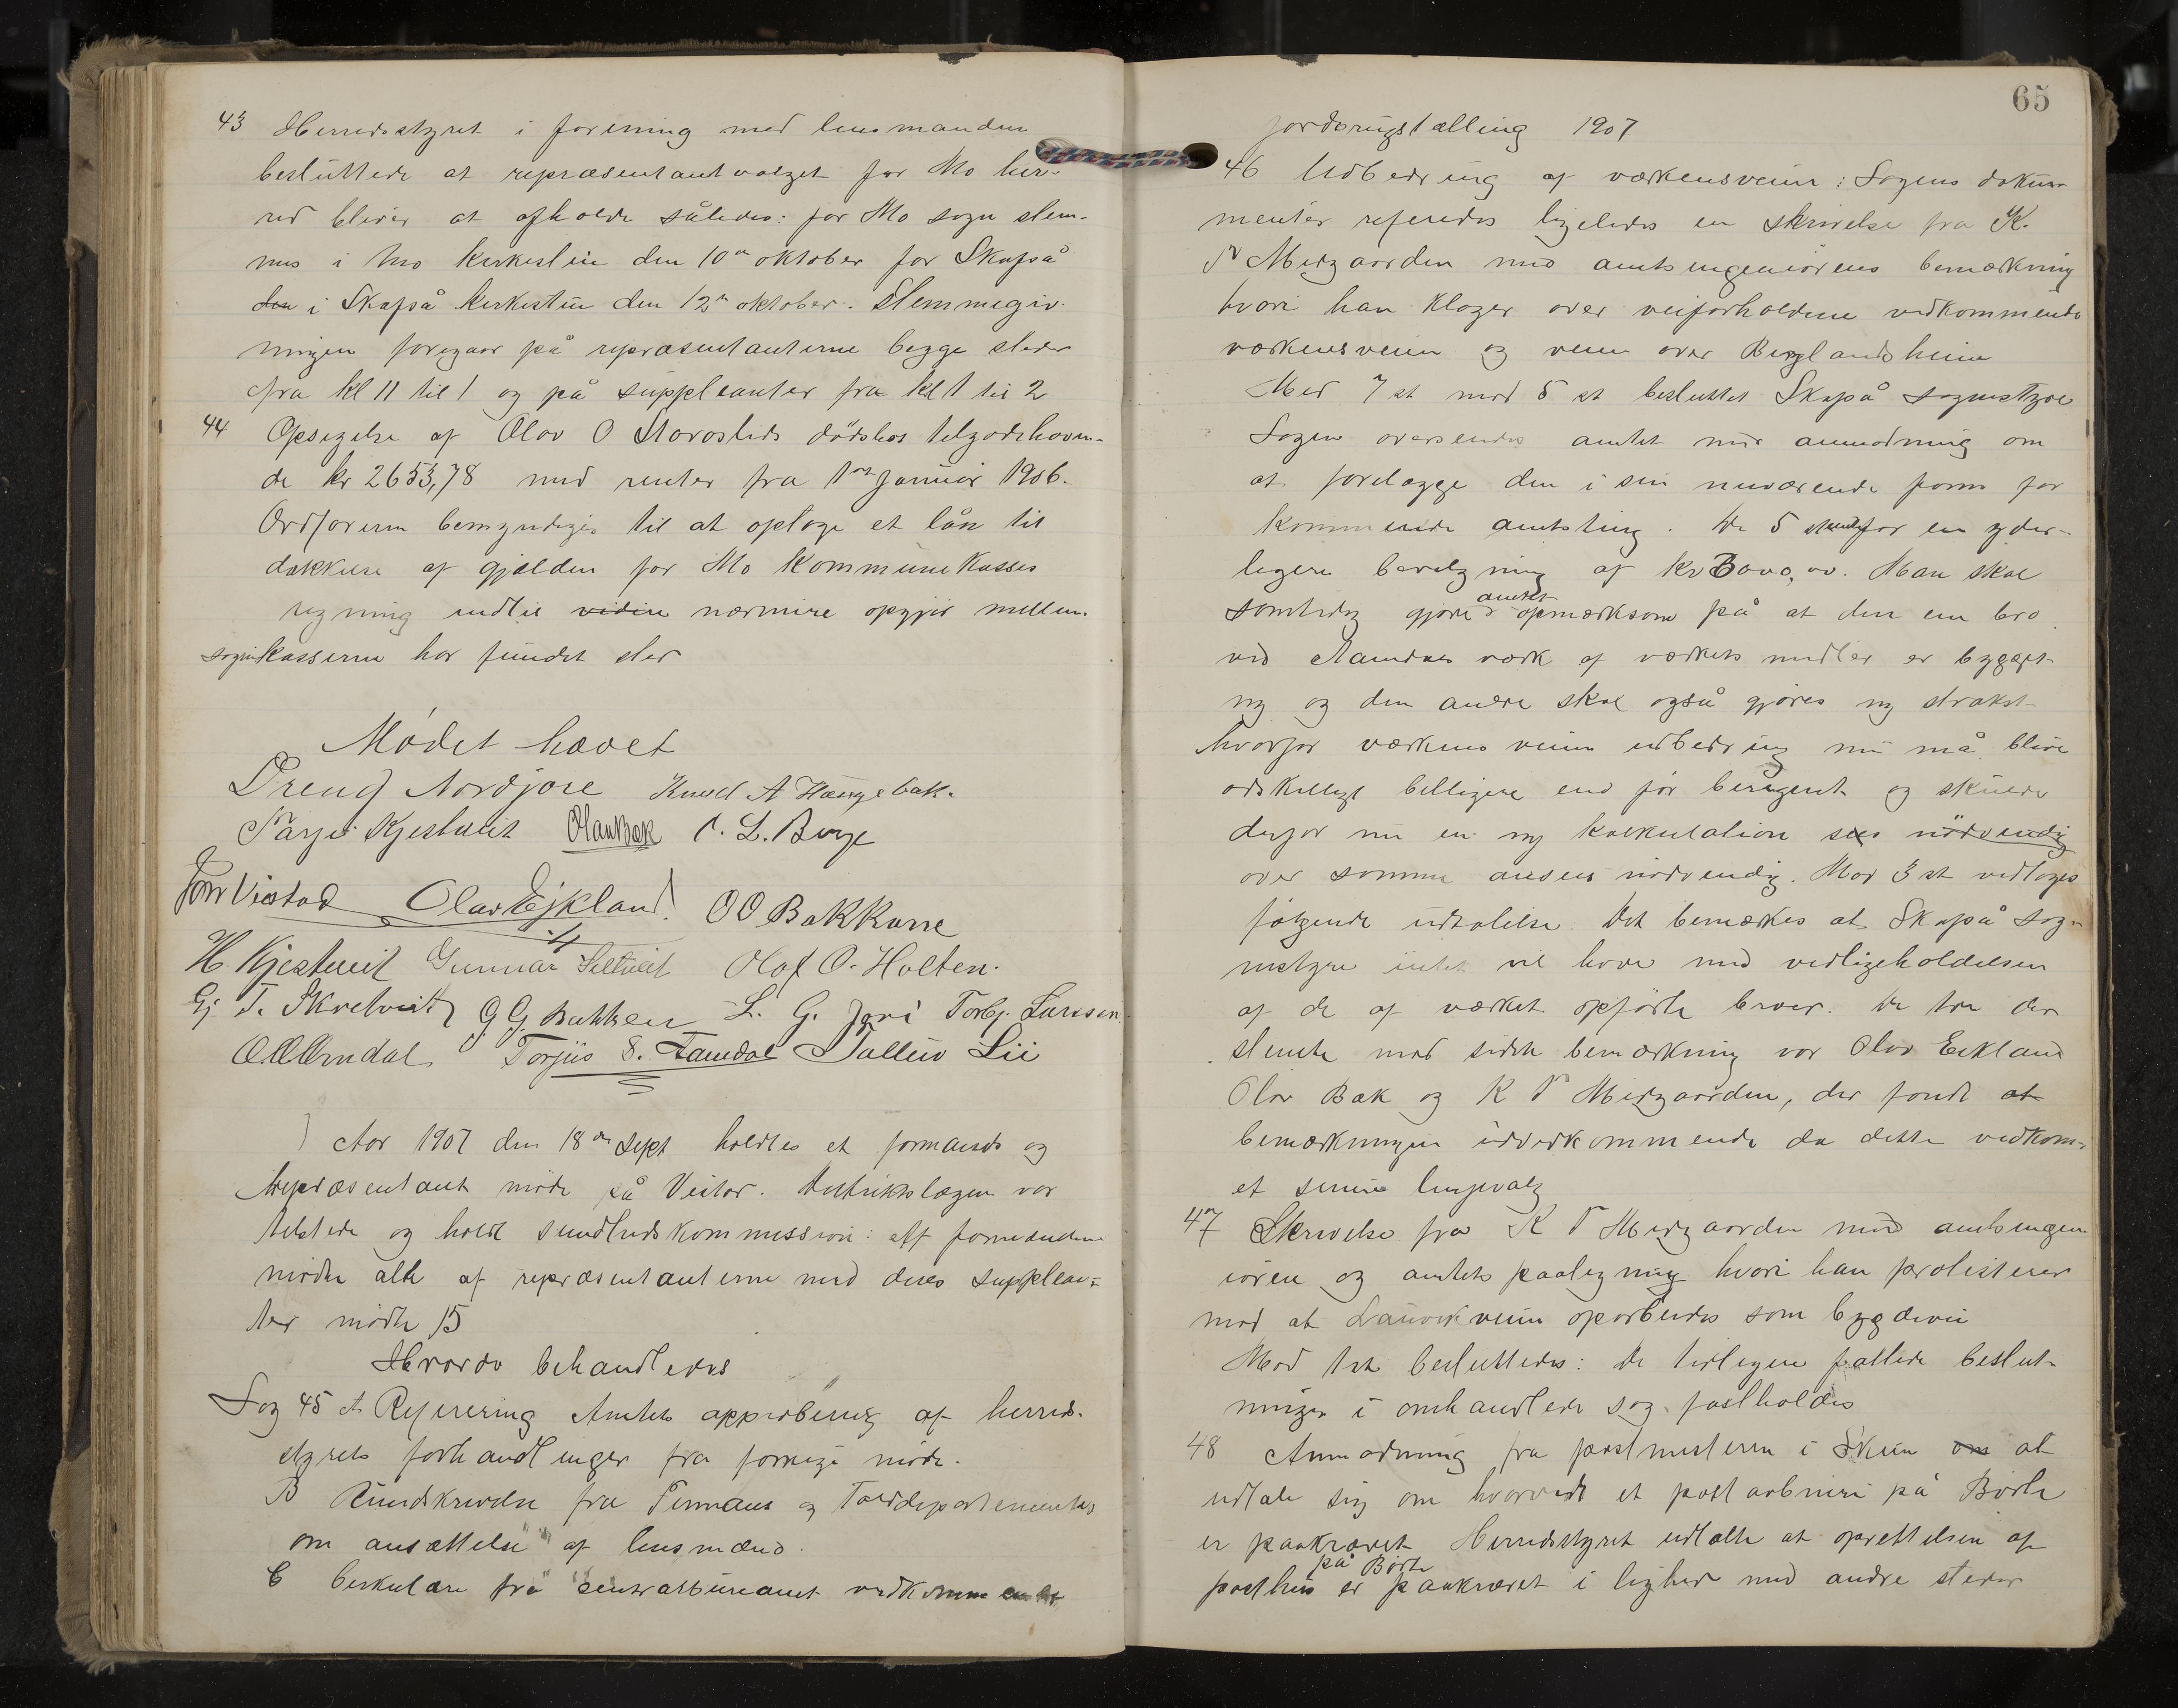 43 Herredsstyret i forening med lensmanden
besluttede at repræsentantvalget for Mo her-
red bliver at afholde således: for Mo sogn stem-
mes i Mo kirkestue den 10de oktober for Skafså
den i Skafså kirkestue den 12te oktober. Stemmegiv-
ningen foregaar på repræsentanterne begge steder
fra kl 11 til 1 og på suppleanter fra kl 1 til 2
44 Opsigelse af Olav O dödsbos tilgodehaven-
de kr 2653,78 med renter fra 1ste januar 1906.
Ordføreren bemyndiges til at optage et lån til
dækkelse af gjælden for Mo Kommunekasses
regning indtil videre nærmere opgjör mellem
sognekasserne har fundet sted
Mödet hævet
Dreng Nordjore Knud A Haugebak.
Tarjei Kjestveit Olav Bæk T. L. Børge
Jon Vistad Olav Ejkland. O O Bakkane
H. Kjestveit Gunnar Olaf O. Holten.
Gj T. Skretveit G G. Bakken L. G. Jore Torbj. Larssen
O. O. Omdal Torjus S. Tamdal Tallev Lii
Aar 1907 den 18de Sept holdtes et formands og
repræsentant möde på Vistad. Distriktslægen var
tilstede og holdt sundhedskommission: Af formændene
mödte alle af repræsentanterne med deres supplean-
ter mödte 15
Hvorda behandledes
Sag 45 A Referering Amtets approbering af herreds-
styrets forhandlinger fra forrige möde.
B Rundskrivelse fra Finans og Tolddepartementet
om ansættelse af lensmænd.
C Cirkulære fra centralbureauet vedkommende
65
jordbrugstælling 1907
46 Udbedring af værkensveien: Sagens doku-
menter referedes ligeledes en skrivelse fra K.
T Midgaarden med amtsingeniørens bemærkning
hvori han klager over veiforholdene vedkommende
værkensveien og veien over Berglandsheien
Med 7 st mod 5 st besluttet Skafså sognestyre
Sagen oversendes amtet med anmodning om
at forelægge den i sin nuværende form for
kommende amtsting. De 5 stemte for en yder-
ligere bevilgning af kr 3000,00. Man skal
samtidig gjøre amtet opmærksom på at den ene bro
ved Aamdals værk af værkets midler er bygget
ny og den andre skal også gjöres ny strakst
hvorfor værkens veiens udbedring nu må blive
adskilligt billigere end för beregnet og skulde
derfor nu en ny kalkulation sees nödvendig
over samme ansees nödvendig. Mod 3 st vedtoges
fölgende udtalelse. Det bemærkes at Skafså sog-
nestyre intet vil have med vedligeholdelsen
af de af værket opförte broer. De tre der
stemte mod sidste bemærkning var Olav Eikland
Olav Bæk og K T Midgaarden, der fandt at
bemærkningen uvedkommende da dette vedkom-
et senere
47 Skrivelse fra K T Midgaarden med amtsingen-
iören og amtets paategning hvori han protisterer
mod at veien oparbeides som bygdevei
Mod 1 st besluttedes: De tidligere fattede beslut-
ninger i omhandlede sag fastholdes
48 Anmodning fra postmesteren i Skien om at
udtale sig om hvorvidt et postaabneri på Börte
er paakrævet. Herredsstyret udtalte at oprettelsen af
posthus på Börte er paakrævet i lighed med andre steder